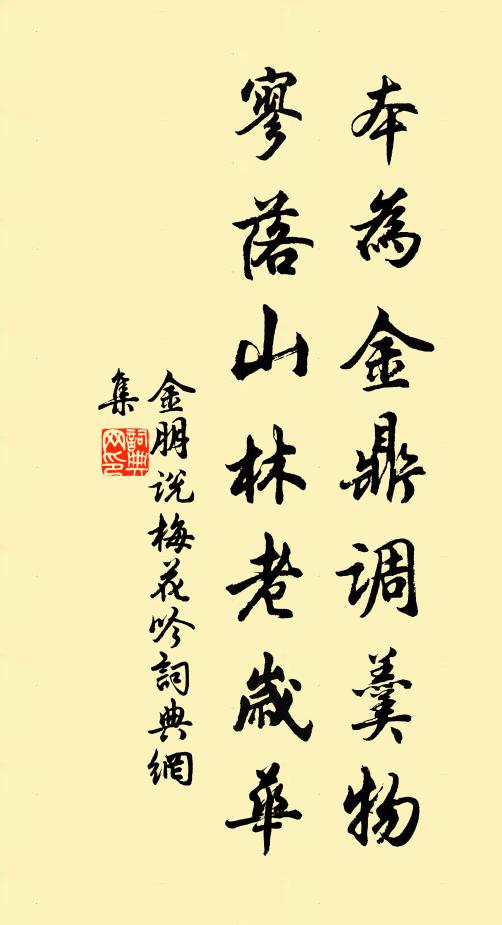 本為金鼎调羹物
寥落山林老歲華
金朋说梅花吟詞典網
集
詞典
网印